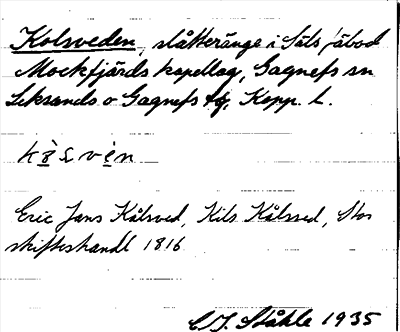 Kolsveden, slåtteränge i Säls fäbod
Mockfjärds kapellag, Gagnefs sn
Leksands o Gagnefs tg, Kopp. l.
Eric Jans Kålsved, Kils Kålsved, Stor
skifteshandl 1816
C. I. Ståhle 1935